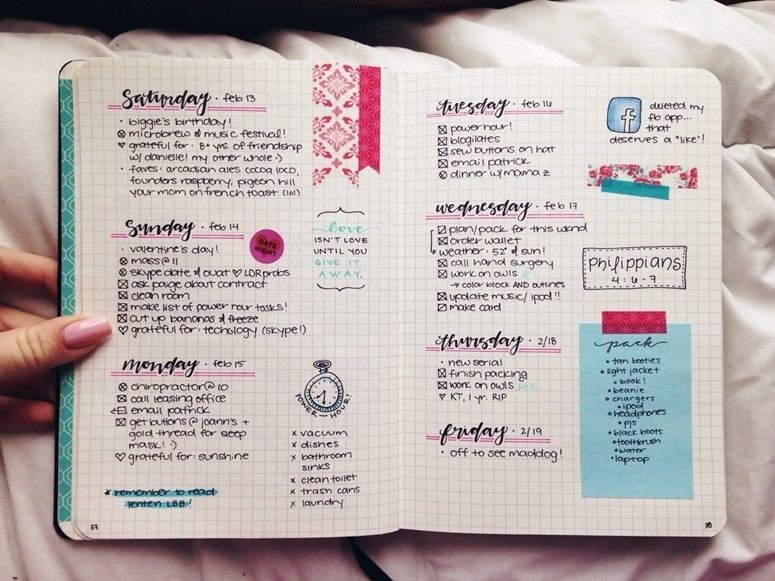 Saturday · feb 13
· biggie's birthday!
microbrew & music festival!
grateful for: 8+ yrs of friendship
w/ danielle! my other whole :)
· faves: arcadian ales cocoa loco,
founders raspberry, pigeon hill
your mom on french toast (lol)
Sunday · feb 14
DATE
NIGHT
· valentine's day!
mass @ 11
skype date & ouat ♡ LDR probs
ask paige about contract
clean room
make list of power hour tasks!
cut up bananas & freeze
♡ grateful for: techology (skype!)
love
ISN'T LOVE
UNTIL YOU
GIVE IT
AWAY.
monday · feb 15
chiropractor @ 10
call leasing office
email patrick
get buttons @ joann's +
gold thread for sleep
mask! :)
♡ grateful for: sunshine
* remember to read
lenten LBB!
POWER-HOUR!
x vacuum
x dishes
x bathroom
sinks
x clean toilet
x trash cans
x laundry
37
tuesday · feb 16
power hour!
blogilates
sew buttons on hat
email patrick
dinner w/ mama z
f
deleted my
fb app...
that
deserves a "like"!
wednesday · feb 17
plan/pack for this wknd
order wallet
weather: 52° & sun!
call hand surgery
work on owls
→ color block AND outlines
update music/ipod!!
make card
philippians
4:6-7
thursday · 2/18
· new serial
finish packing
work on owls
♡ KT, 1 yr. RIP
friday · 2/19
· off to see maddog!
pack
· tan booties
· light jacket
· book!
· beanie
· chargers
· ipod
· headphones
· pjs
· black boots
· toothbrush
· water
· laptop
38